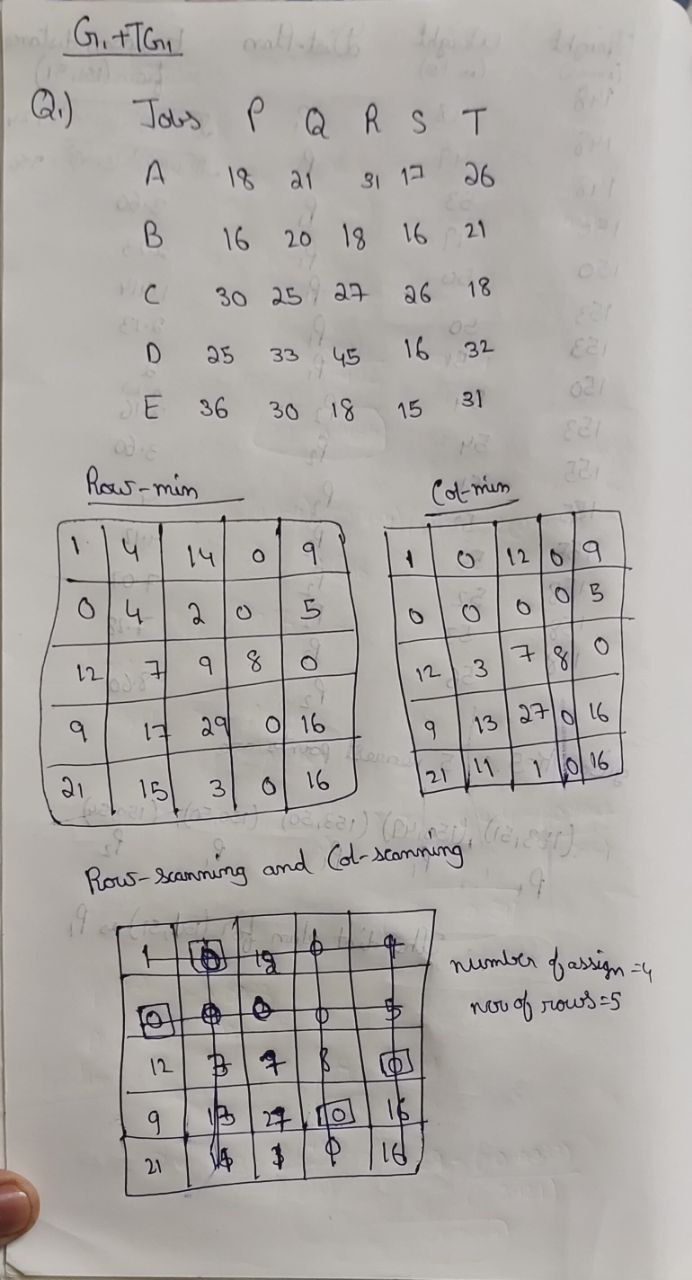 G1+TG1
Q.) Jobs P Q R S T
A 18 21 31 17 26
B 16 20 18 16 21
C 30 25 27 26 18
D 25 33 45 16 32
E 36 30 18 15 31
Row-min
1 4 14 0 9
0 4 2 0 5
12 7 9 8 0
9 17 29 0 16
21 15 3 0 16
Col-min
1 0 12 0 9
0 0 0 0 5
12 3 7 8 0
9 13 27 0 16
21 11 1 0 16
Row-scanning and Col-scanning
1 0 12 0 9
0 0 0 0 5
12 3 7 8 0
9 13 27 0 16
21 11 1 0 16
number of assign=4
no. of rows=5